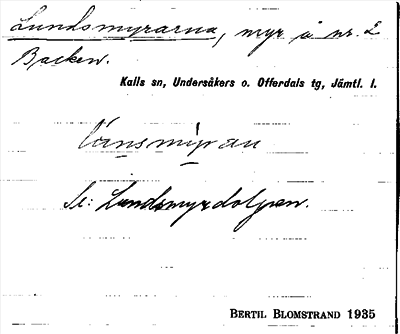 Lundsmyrarna, myr å nr. 2
Backen.
Kalls sn, Undersåkers o. Offerdals tg, Jämtl. l.
Se: Lundsmyrdolpen.
BERTIL BLOMSTRAND 1935